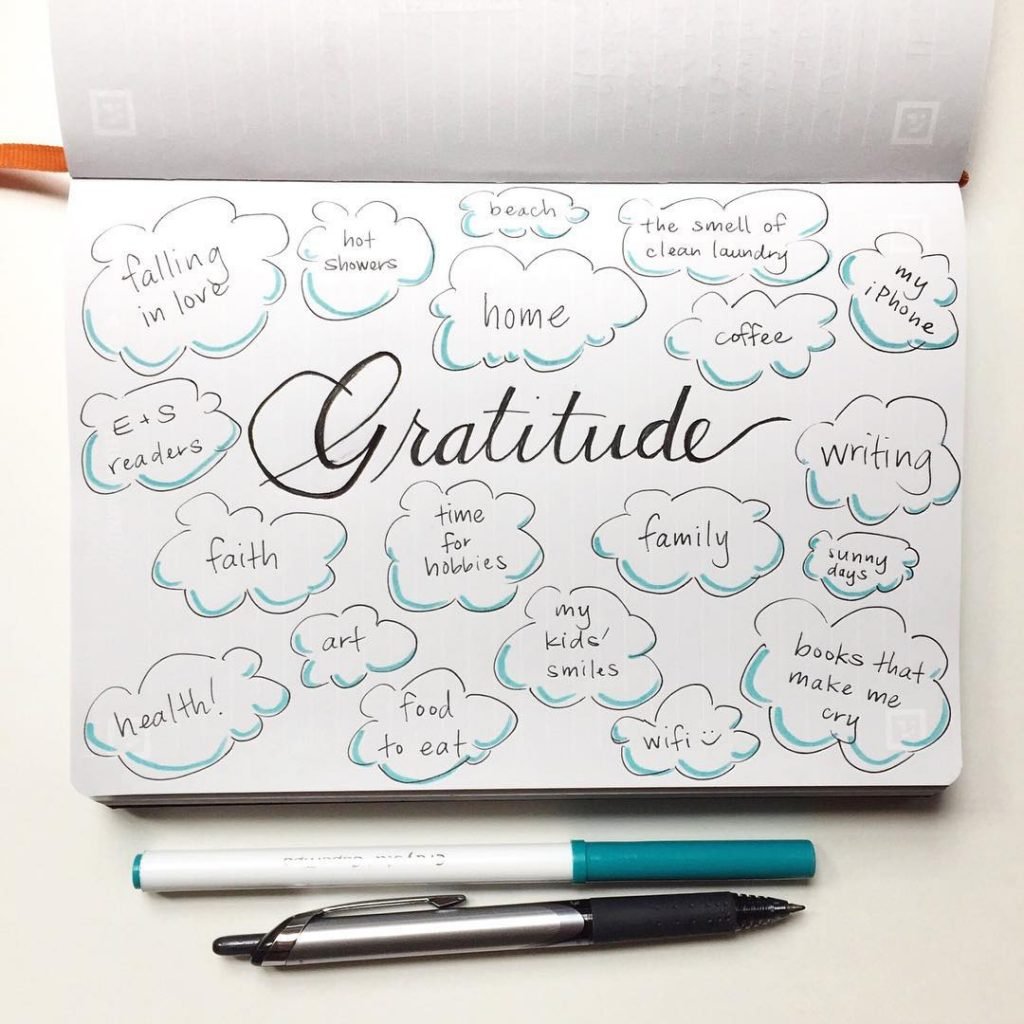 beach
falling
in love
hot
showers
the smell of
clean laundry
my
iPhone
home
coffee
E + S
readers
Gratitude
writing
faith
time
for
hobbies
family
sunny
days
art
my
kids'
smiles
books that
make me
cry
health!
food
to eat
wifi
Crayola Supertips